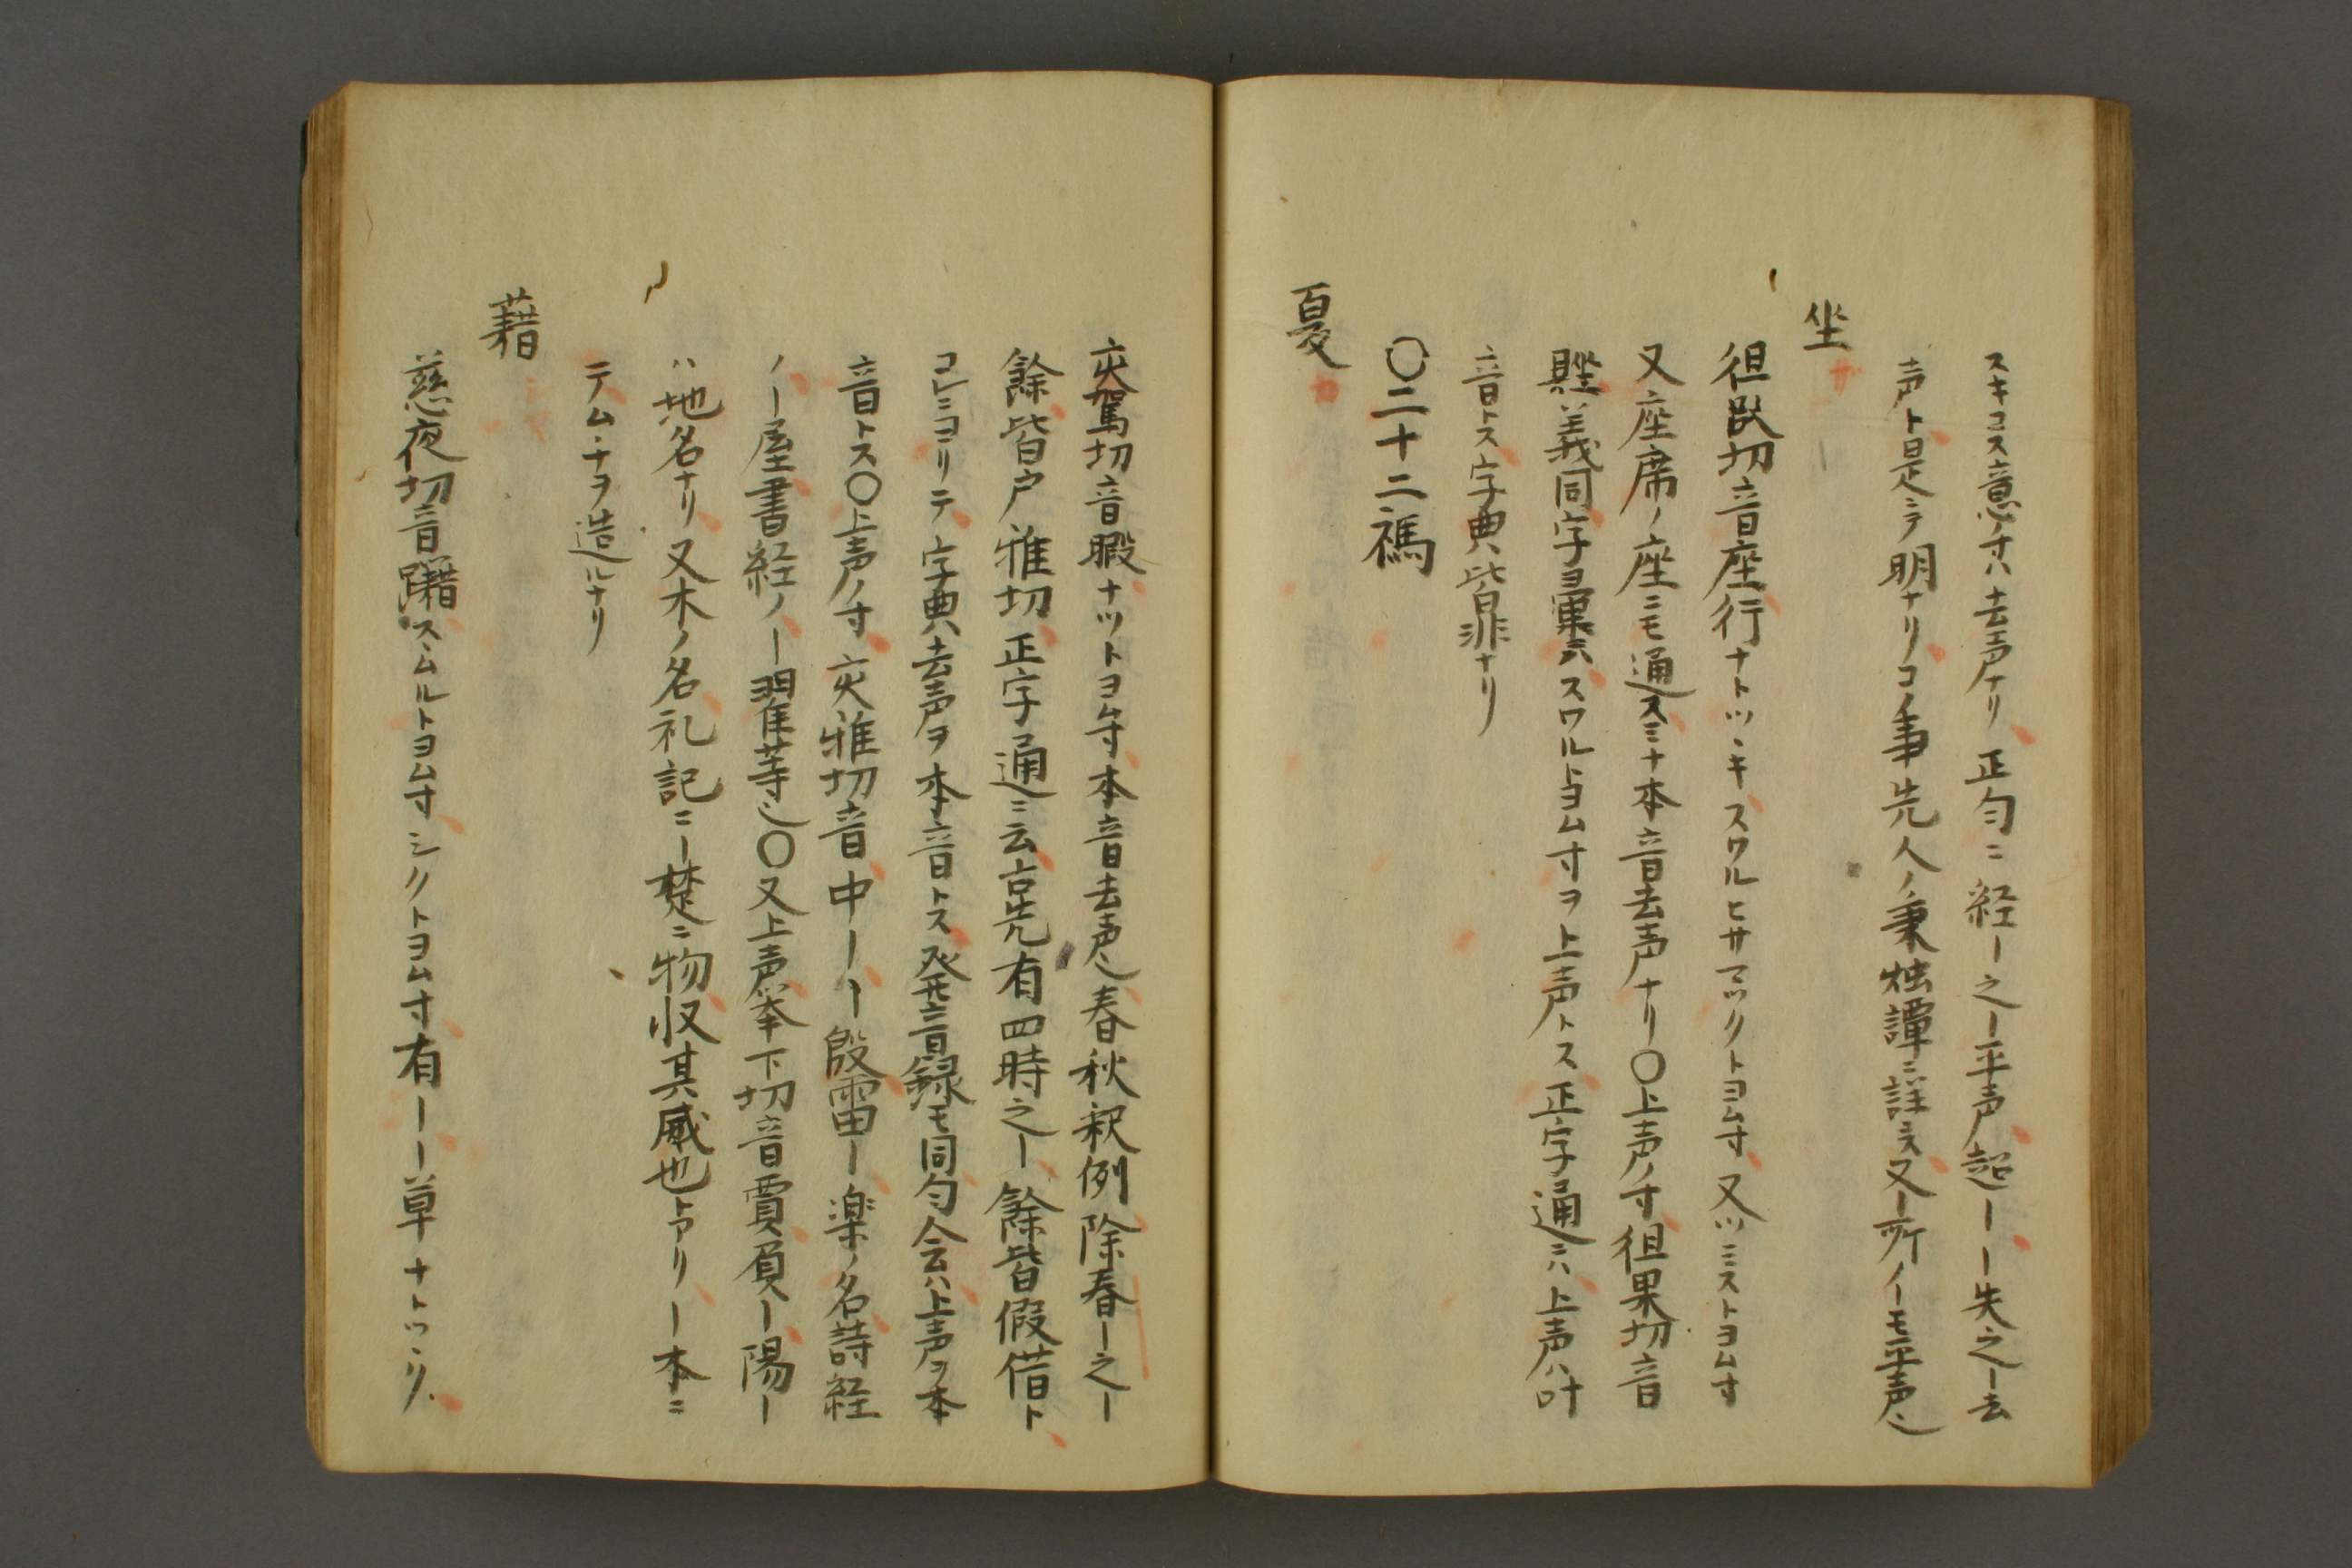 スキコス意ノ寸ハ去声ナリ正匀ニ経ー之ー平声起ーー失之ー去
声ト是ニテ明ナリコノ事先人ノ秉燭譚ニ詳ス又ー所ノーモ平声也
坐
サ
徂臥切音座行ナトツヽキスワルヒサマツクトヨム寸又ツミストヨム寸
又座席ノ座ニモ通スミナ本音去声ナリ〇上声ノ寸徂果切音
義同字彙ハスワルトヨム寸ヲ上声トス正字通ニハ上声ハ叶
音トス字典皆非ナリ
〇二十二禡
夏
カ
亥駕切音暇ナツトヨム寸本音去声也春秋釈例除春ー之ー
餘皆戸雅切正字通ニ云古先有四時之ー餘皆假借ト
コレニヨリテ字典去声ヲ本音トス発音録モ同匀会ハ上声ヲ本
音トス〇上声ノ寸亥雅切音中ーーー殷雷ー楽ノ名詩経
ノー屋書経ノー翟等也〇又上声挙下切音賈負ー陽ー
ハ地名ナリ又木ノ名礼記ニー楚ニ物収其威也トアリー本ニ
テムチヲ造ルナリ
藉
慈夜切音躤スヽムルトヨム寸シクトヨム寸有ーー草ナトツヽク